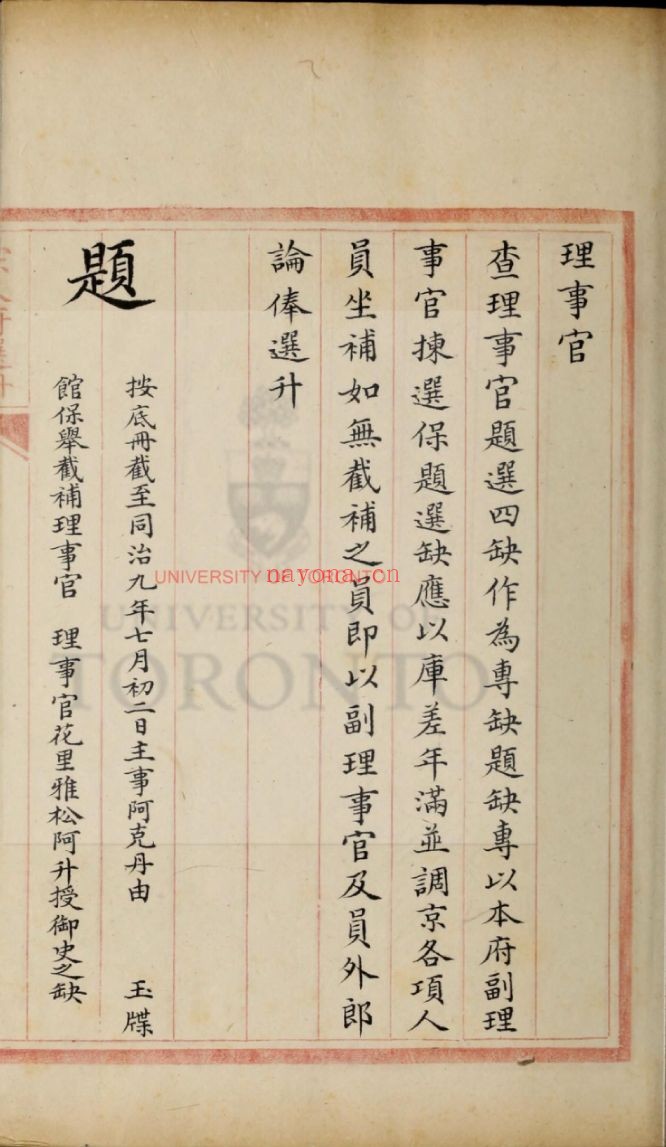 理事官
查理事官題選四缺作為專缺題缺專以本府副理
事官揀選保題選缺應以庫差年滿並調京各項人
員坐補如無截補之員即以副理事官及員外郎
論俸選升
題
按底冊截至同治九年七月初二日主事阿克丹由 玉牒
館保舉截補理事官 理事官花里雅松阿升授御史之缺
UNIVERSITY OF TORONTO
nayona.cn
UNIVERSITY OF
TORONTO